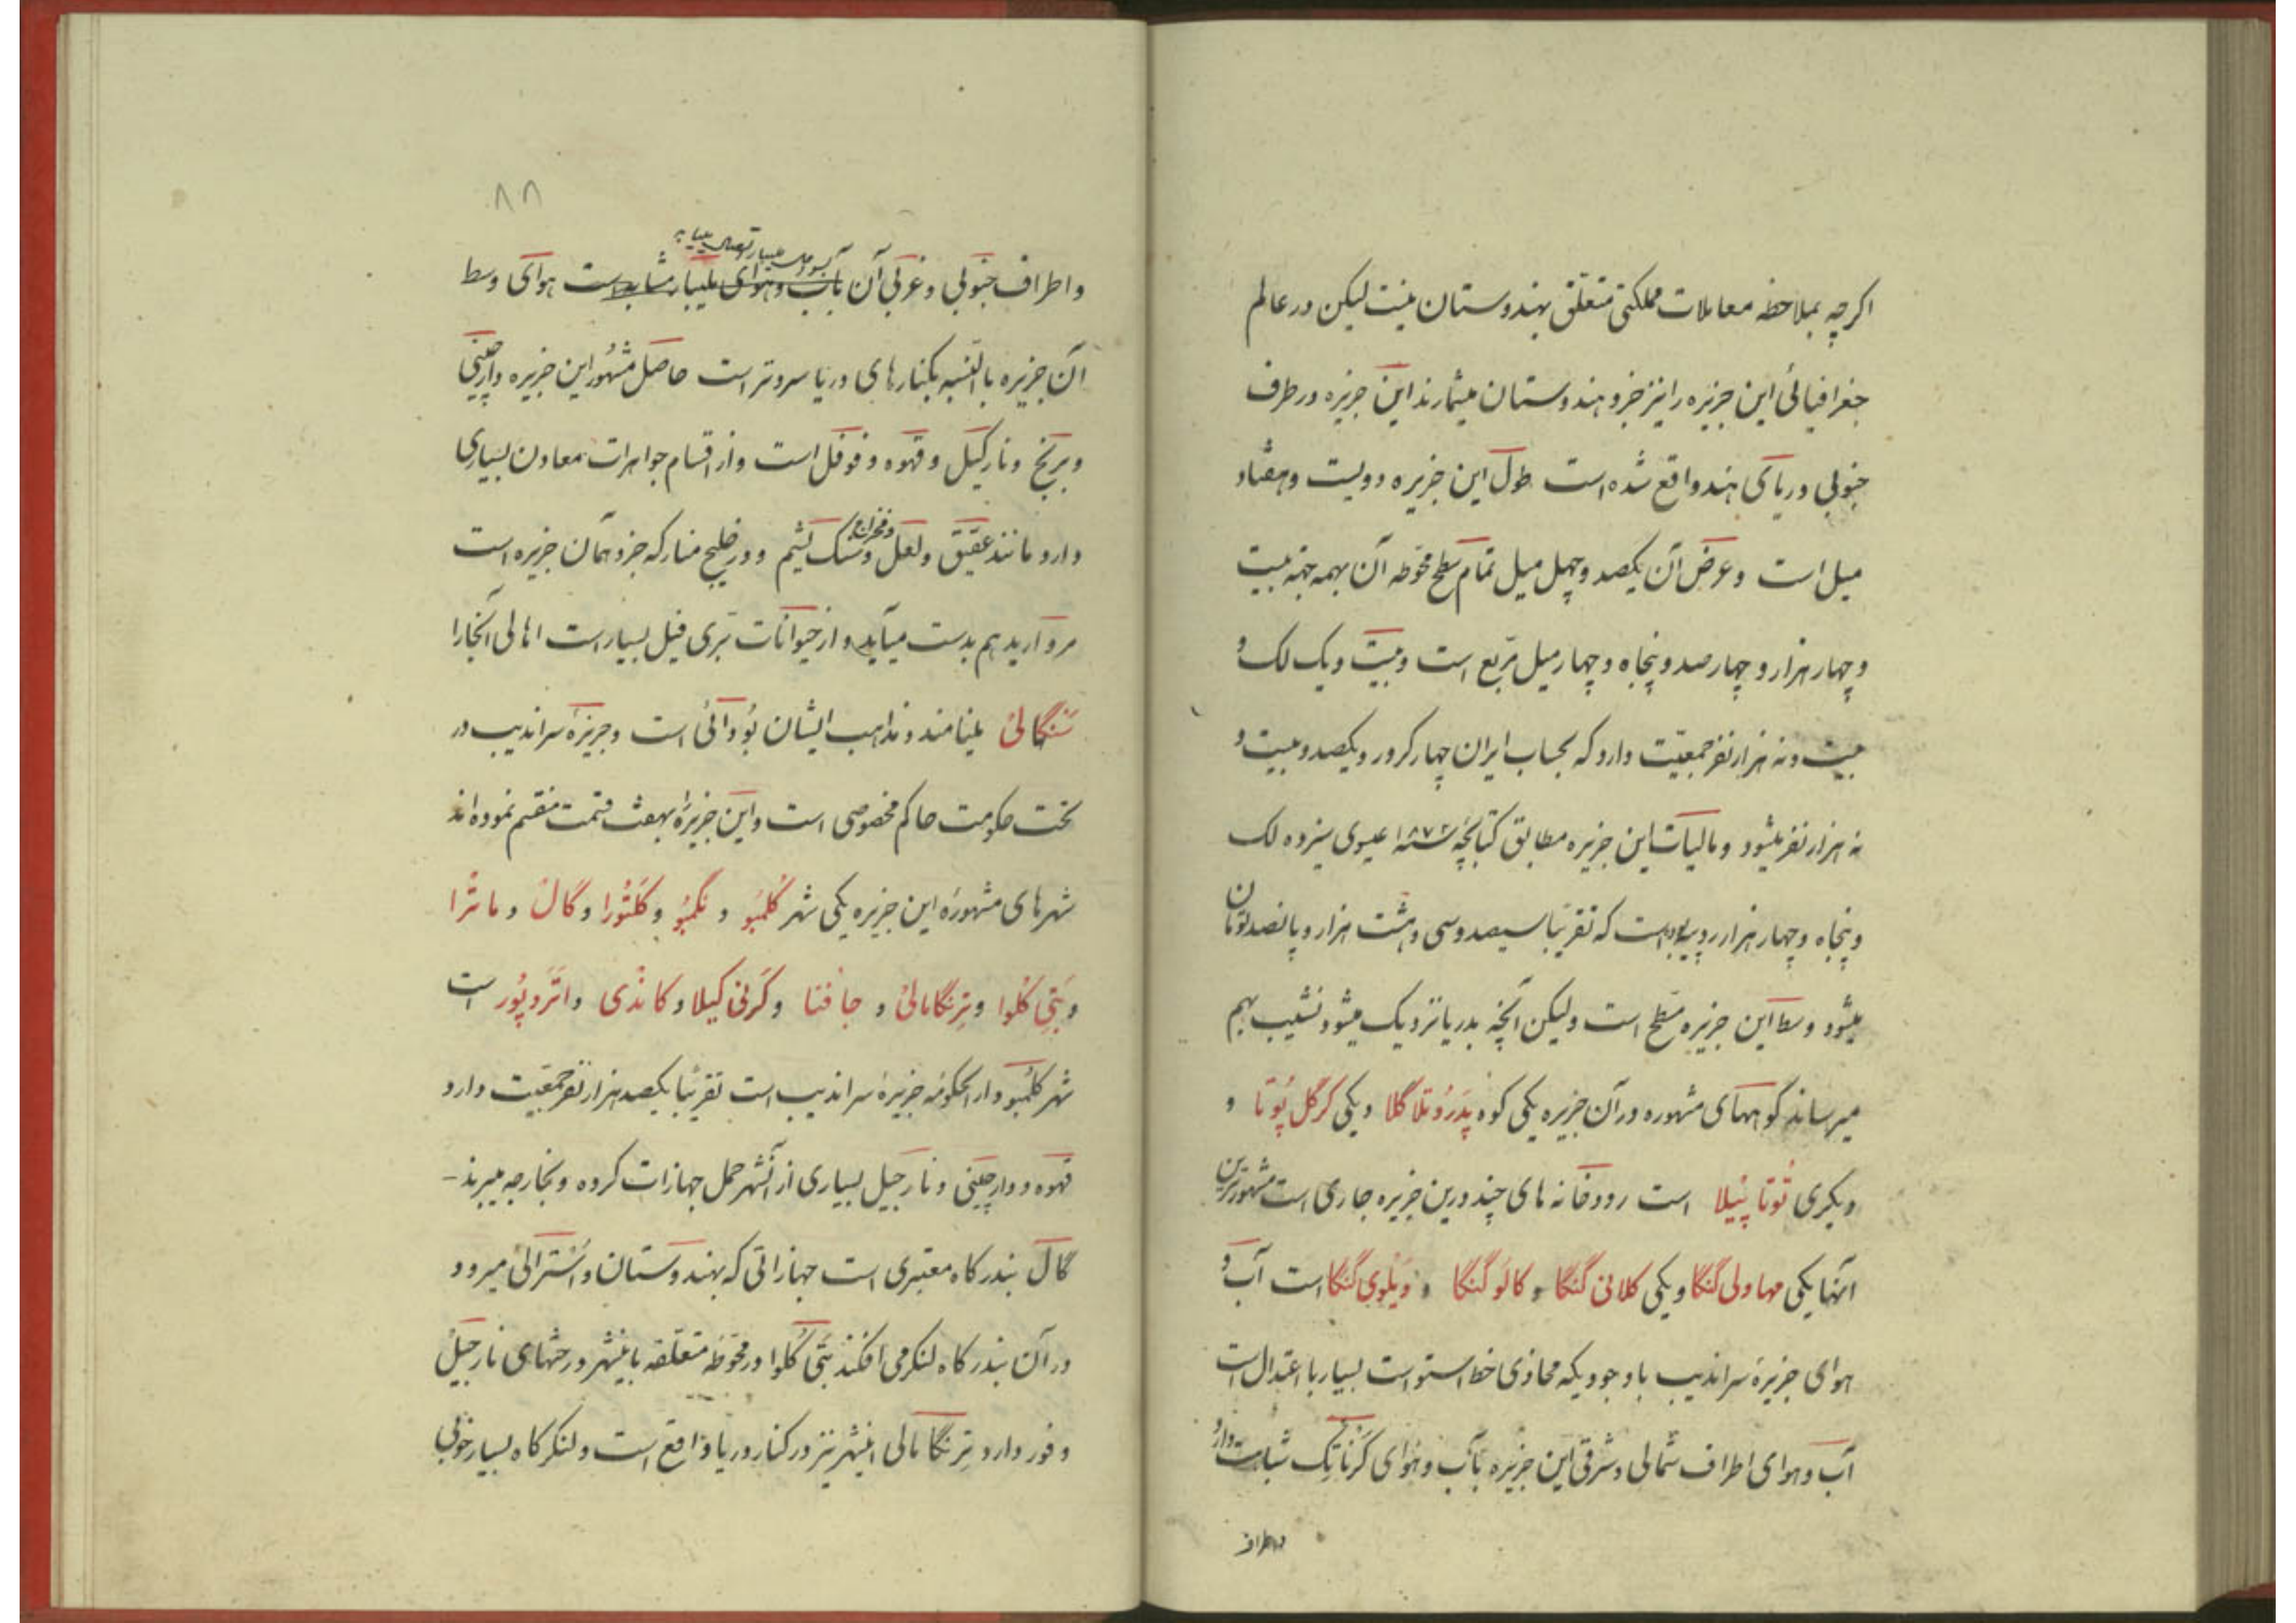 اگرچه بملاحظه معاملات مملکتی متعلق بهندوستان نیست لیکن در عالم
جغرافیائی این جزیره را نیز جزو هندوستان میشمارند این جزیره در طرف
جنوبی دریای هند واقع شده است طول این جزیره دویست و هفتاد
میل است و عرض آن یکصد و چهل میل تمام سطح محوطه آن بهمه جهة بیست
و چهار هزار و چهار صد و پنجاه و چهار میل مربع است و بیست و یک لک و
بیست و نه هزار نفر جمعیت دارد که بحساب ایران چهار کرور و یکصد و بیست و
نه هزار نفر میشود و مالیات این جزیره مطابق کتابچه سنه ۱۸۷۲ عیسوی سیزده لک
و پنجاه و چهار هزار روپیه بوده است که تقریبا سیصد و سی و هشت هزار و پانصد تومان
میشود وسط این جزیره مسطح است ولیکن آنچه بدریا نزدیک میشود نشیب بهم
میرساند کوههای مشهوره در آن جزیره یکی کوه پدروتلاگلا و یکی کرگل پوتا و
دیگری توتا پیلا است رودخانه های چند درین جزیره جاری است مشهورترین
آنها یکی مهاولی گنگا و یکی کلانی گنگا و کالو گنگا و ویلوی گنگا است آب و
هوای جزیرهٔ سراندیب باوجودیکه محاذی خط استواست بسیار با اعتدال است
آب و هوای اطراف شمالی و شرقی این جزیره بآب و هوای کرناتک شباهت دارد
و اطراف
۸۸
و اطراف جنوبی و غربی آن بآب و هوای ملیبار مشابه است هوای وسط
آن جزیره بالنسبه بکنارهای دریا سردتر است حاصل مشهور این جزیره دارچینی
و برنج و نارگیل و قهوه و فوفل است و از اقسام جواهرات معادن بسیاری
دارد مانند عقیق و لعل و سنگ یشم و در خلیج منار که جزو همان جزیره است
مروارید هم بدست میآید و از حیوانات بری فیل بسیار است اهالی آنجا را
سنگالی مینامند و مذاهب ایشان بودائی است و جزیرهٔ سراندیب در
تحت حکومت حاکم مخصوصی است و این جزیره را بهفت قسمت منقسم نموده اند
شهرهای مشهوره این جزیره یکی شهر کلمبو و نگمبو و کلتورا و گال و ماترا
و بتی کلوا و ترنگامالی و جافنا و کرنی گیلا و کاندی و اتروپور است
شهر کلمبو دارالحکومهٔ جزیرهٔ سراندیب است تقریبا یکصد هزار نفر جمعیت دارد
قهوه و دارچینی و نارجیل بسیاری از آنشهر حمل جهازات کرده و بخارجه میبرند -
گال بندرگاه معتبری است جهازاتی که بهندوستان و استرالی میرود
در آن بندرگاه لنگر می افکند بتی کلوا در محوطه متعلقه باینشهر درختهای نارجیل
وفور دارد ترنگامالی اینشهر نیز در کنار دریا واقع است و لنگرگاه بسیار خوبی